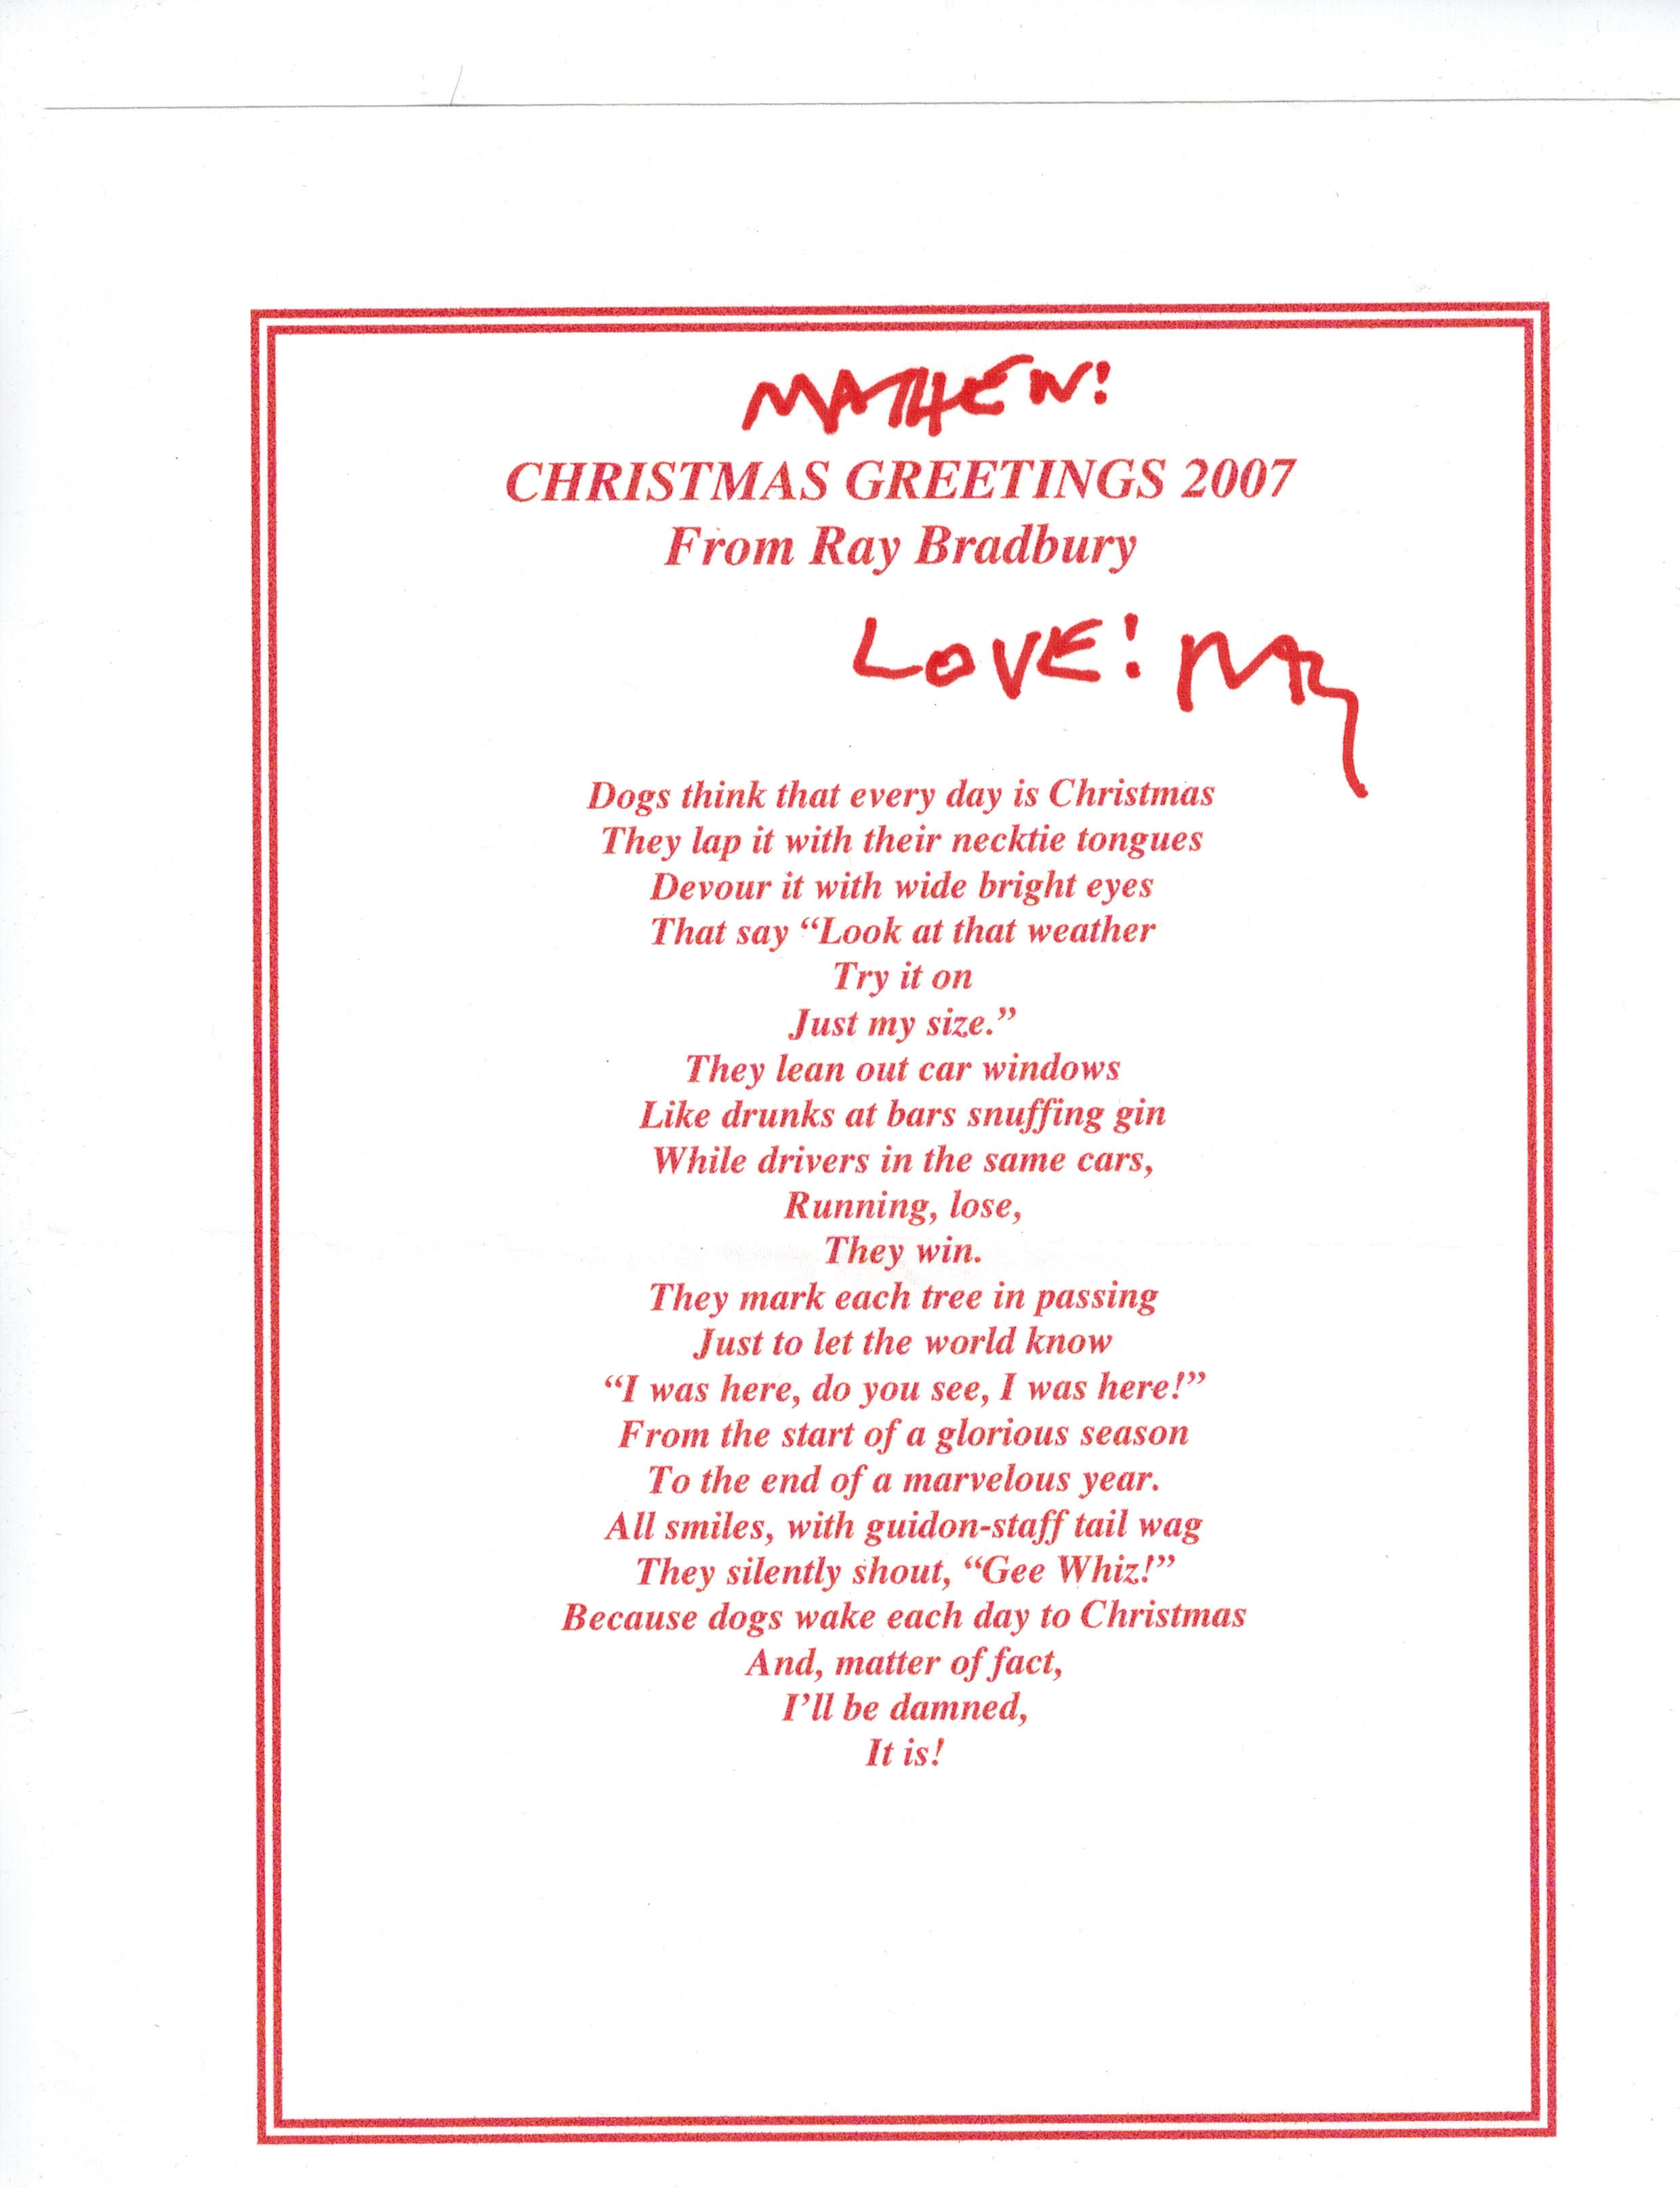 MATHEW!
CHRISTMAS GREETINGS 2007
From Ray Bradbury
LOVE! RAY
Dogs think that every day is Christmas
They lap it with their necktie tongues
Devour it with wide bright eyes
That say “Look at that weather
Try it on
Just my size.”
They lean out car windows
Like drunks at bars snuffing gin
While drivers in the same cars,
Running, lose,
They win.
They mark each tree in passing
Just to let the world know
“I was here, do you see, I was here!”
From the start of a glorious season
To the end of a marvelous year.
All smiles, with guidon-staff tail wag
They silently shout, “Gee Whiz!”
Because dogs wake each day to Christmas
And, matter of fact,
I’ll be damned,
It is!